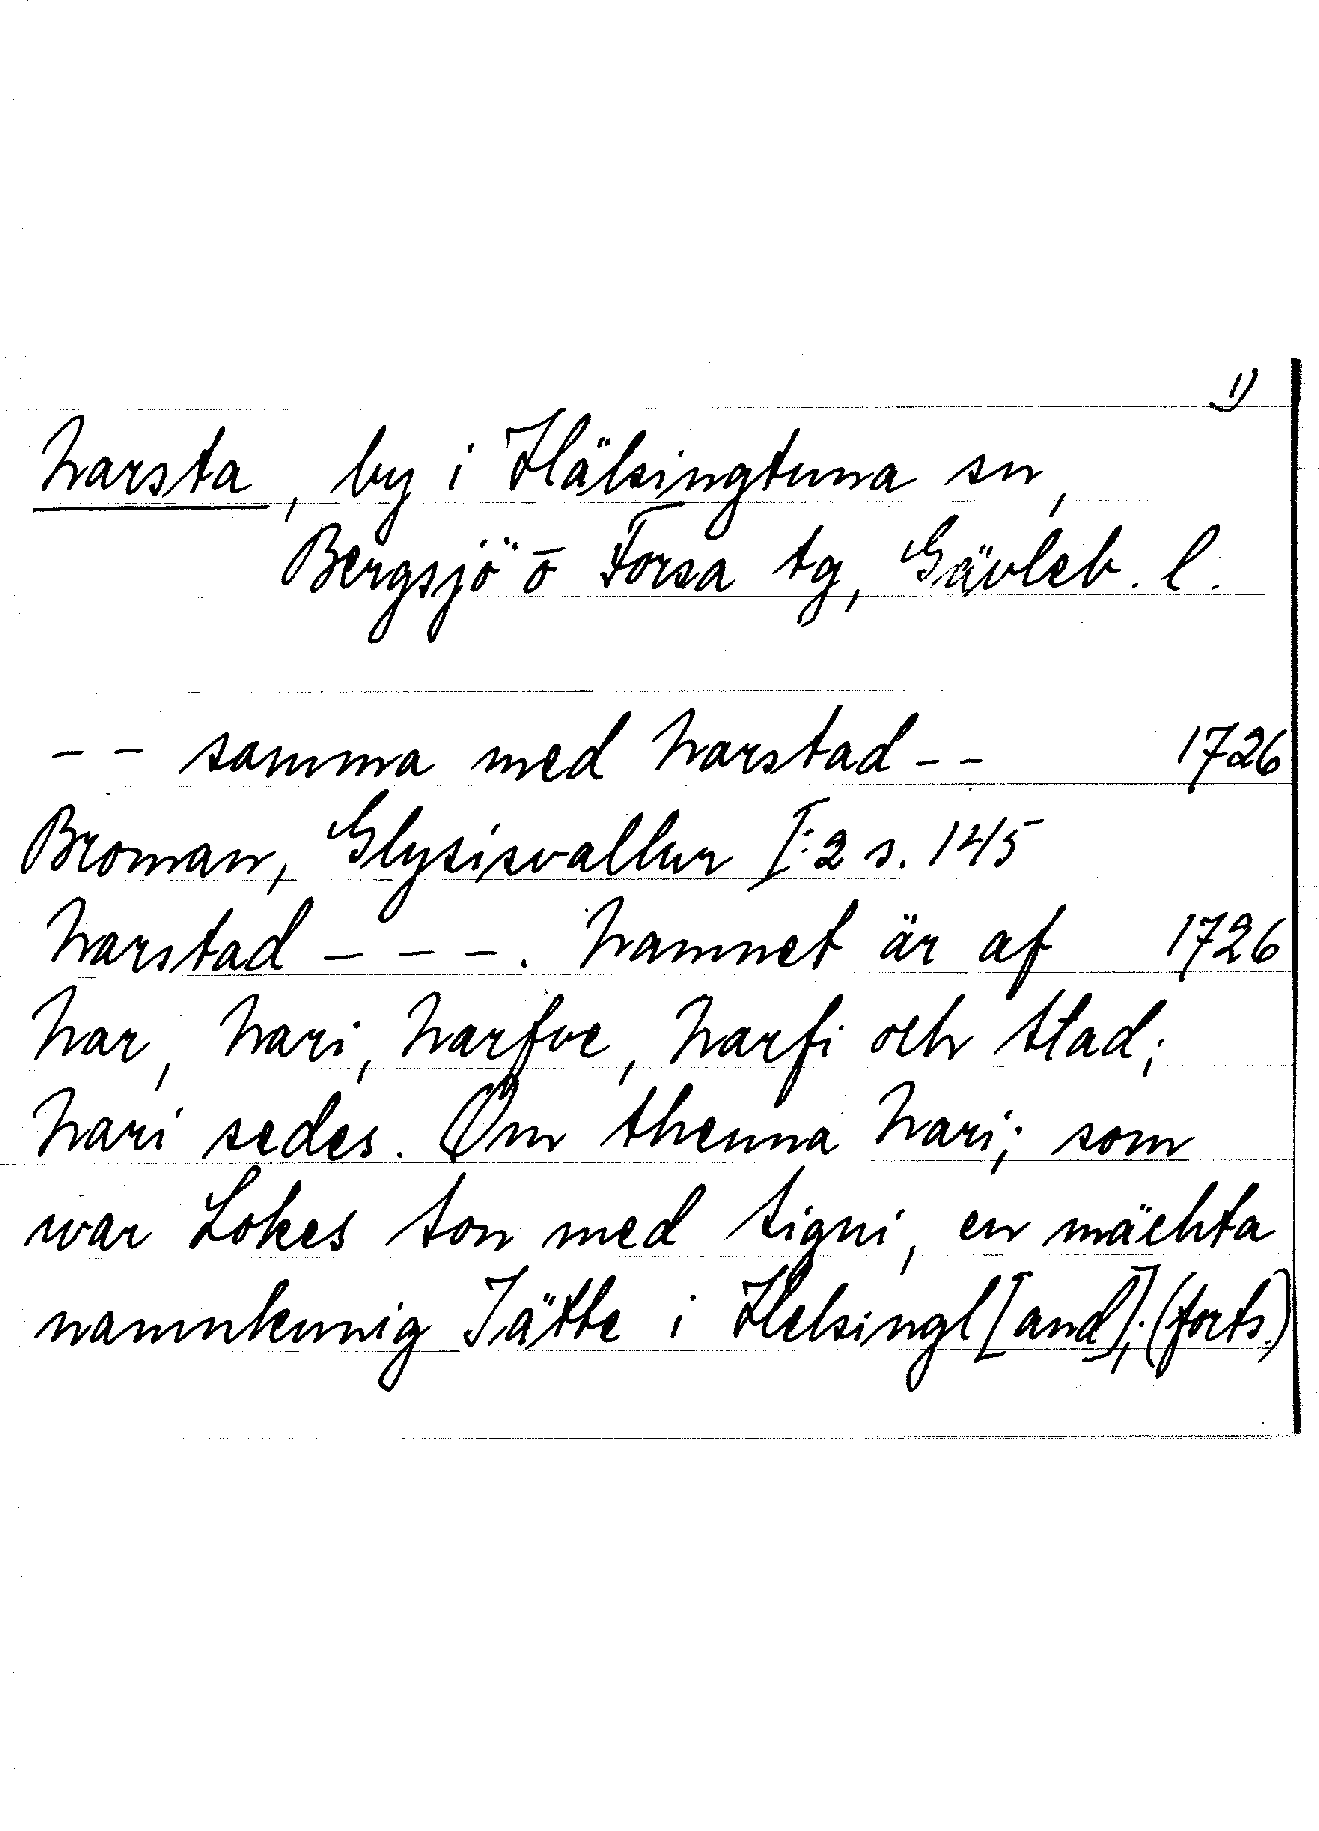 1)
Narsta, by i Hälsingtuna sn,
Bergsjö o Forsa tg, Gävleb. l.
-- samma med Narstad -- 1726
Broman, Glysisvallur I:2 s. 145
Narstad ---. Namnet är af 1726
Nar, Nari, Narfve, Narfi och Stad;
Nari sedes. Om thenna Nari; som
war Lokes Son med Signi, en mächta
namnkunnig Jätte i Helsingl[and]; (forts.)